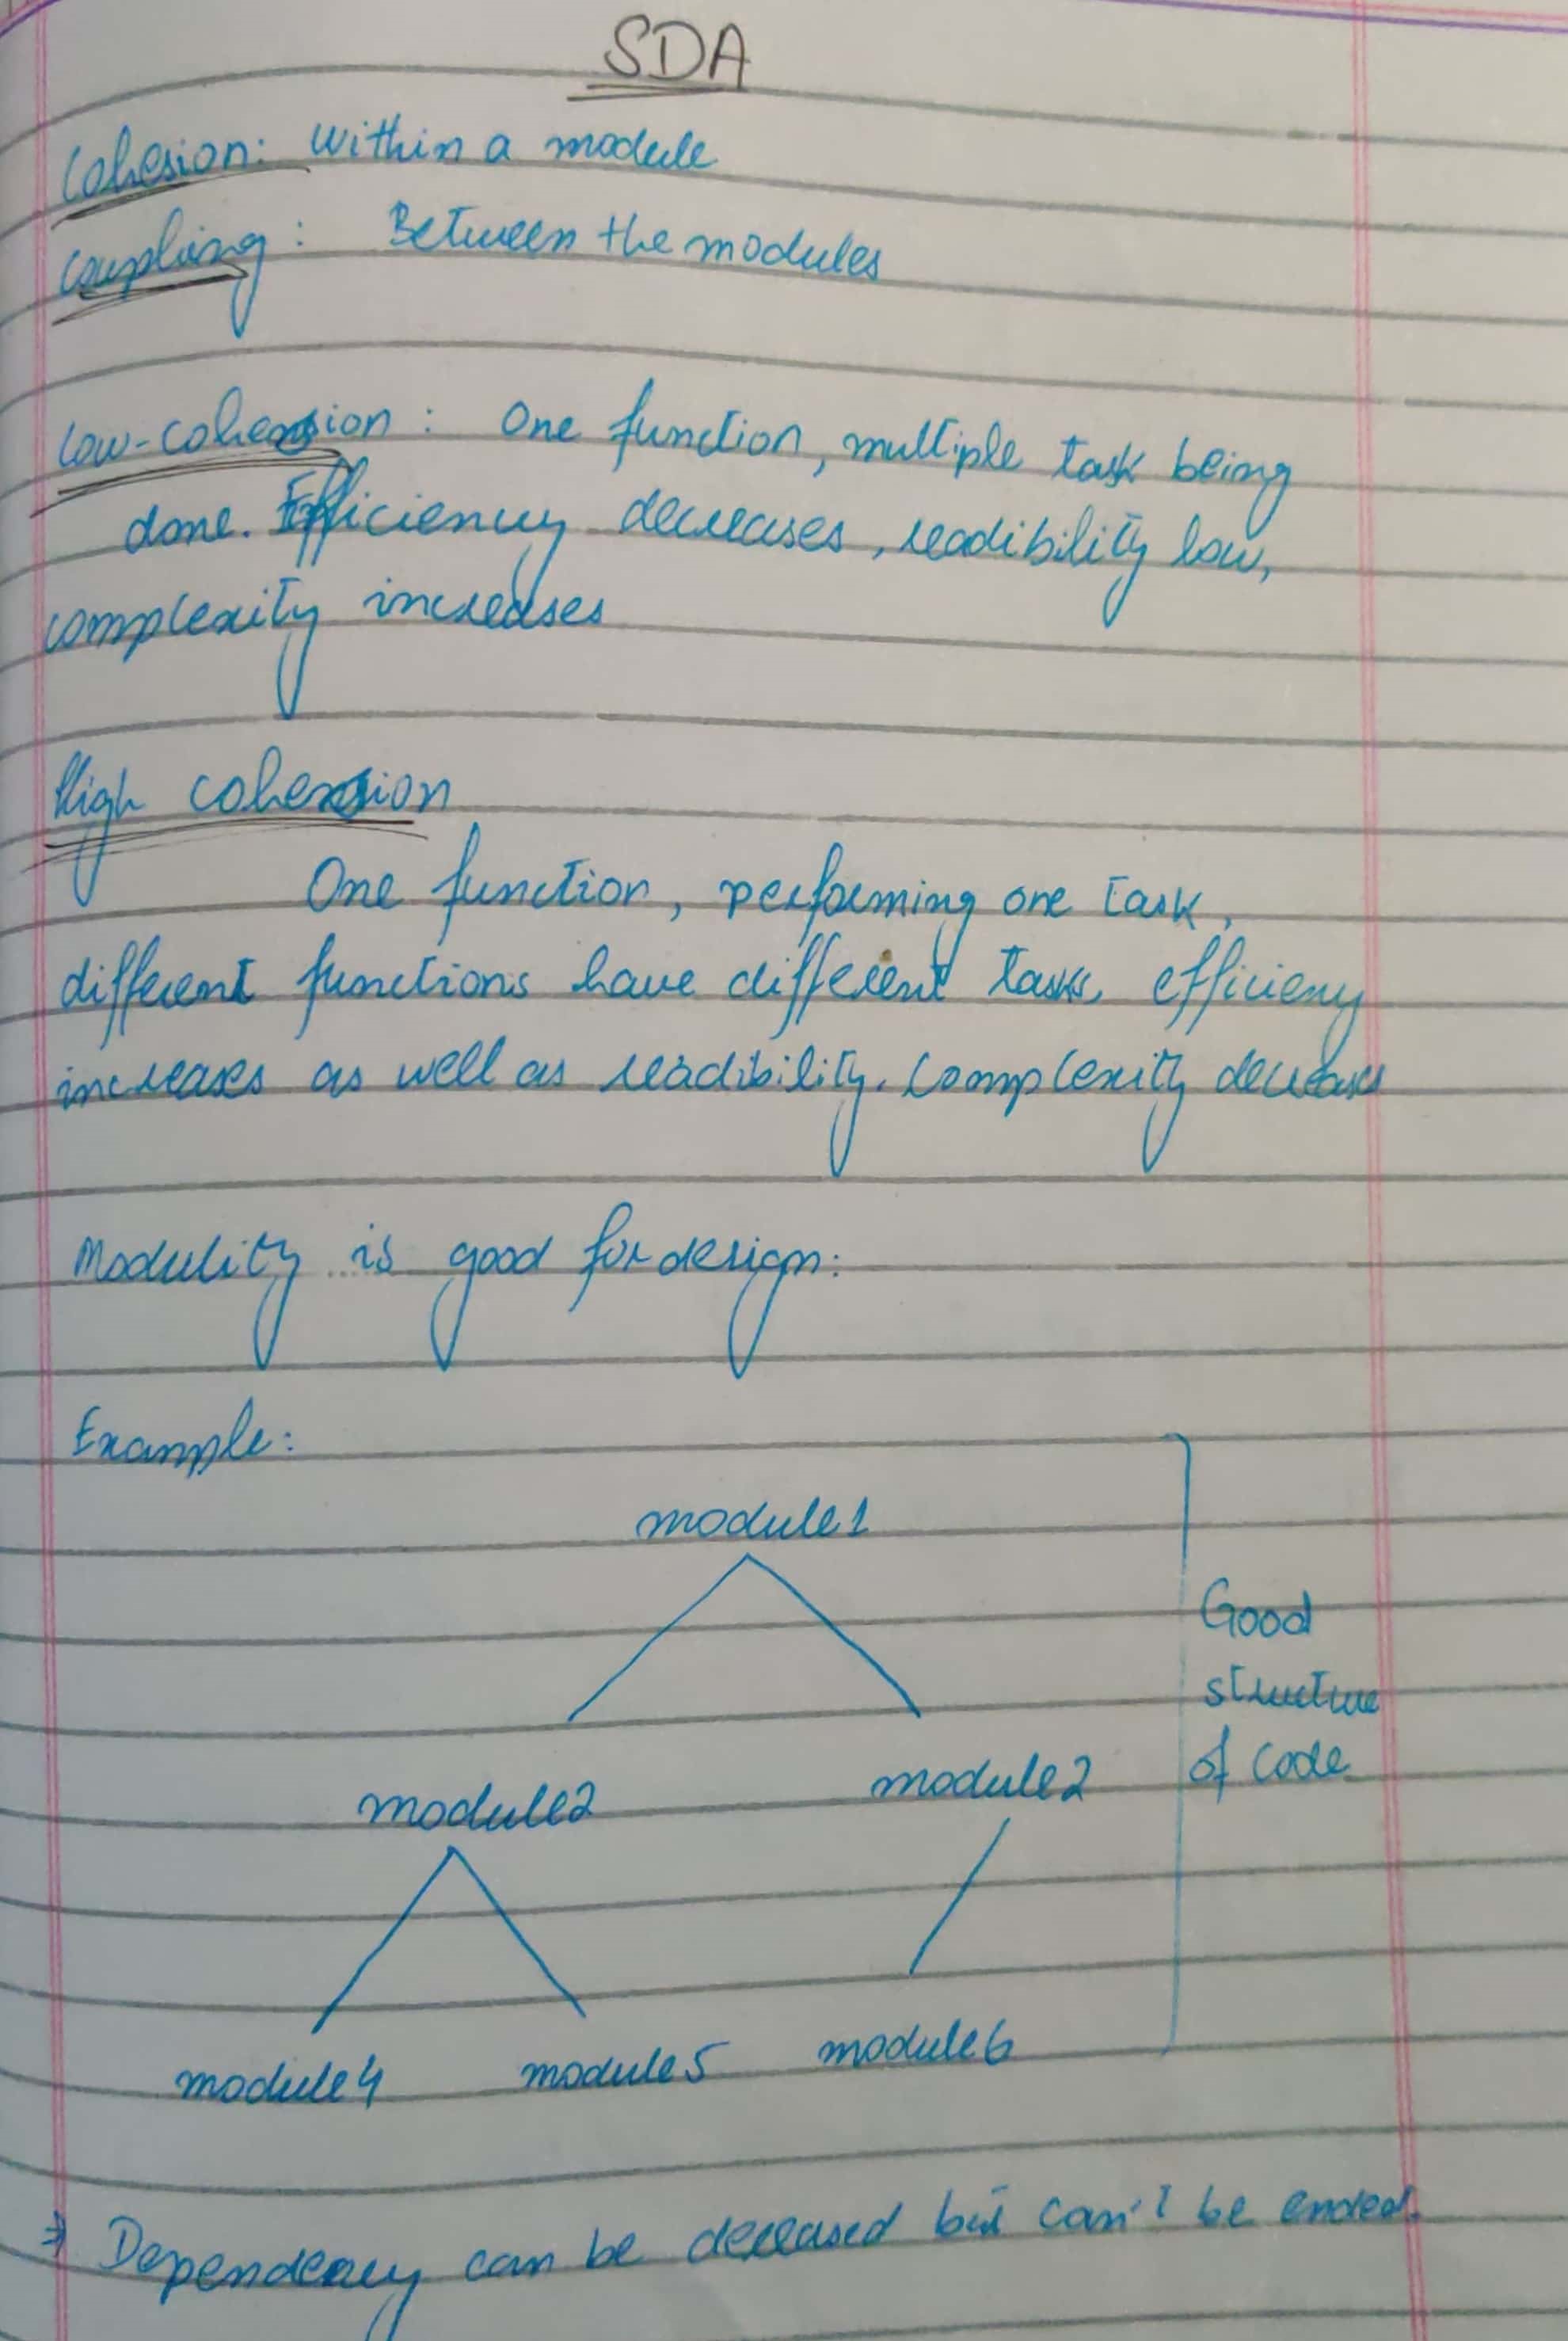 SDA
Cohesion: Within a module
coupling: Between the modules
Low-cohesion: One function, multiple task being
done. Efficiency decreases, readibility low,
complexity increases
High cohesion
One function, performing one task,
different functions have different tasks, efficieny
increases as well as readibility. Complexity decreases
Modulity is good for design:
Example:
module1
Good
structure
of code
module2 module2
module4 module5 module6
⇒ Dependency can be decreased but can't be ended.